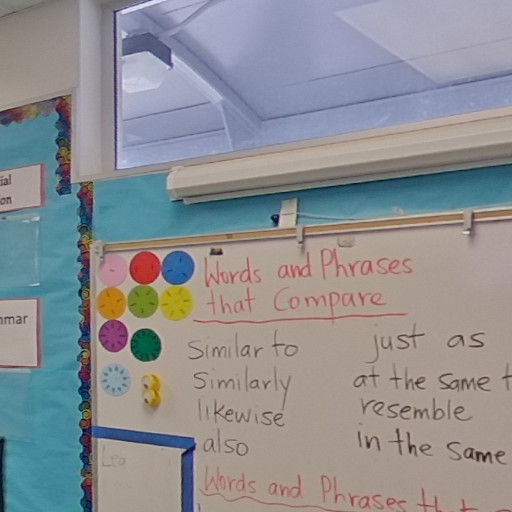 Words and Phrases
that Compare
Similar to
Similarly
likewise
also
just as
at the same
resemble
in the same
Words and Phrases